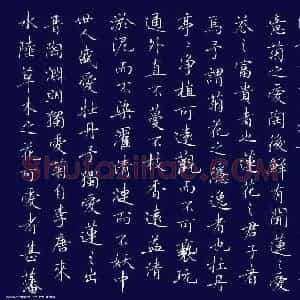 水陸草木之花可愛者甚蕃
晉陶淵明獨愛菊自李唐來
世人盛愛牡丹予獨愛蓮之出
淤泥而不染濯清漣而不妖中
通外直不蔓不枝香遠益清
亭亭淨植可遠觀而不可褻玩
焉予謂菊花之隱逸者也牡丹
花之富貴者也蓮花之君子者
噫菊之愛陶後鮮有聞蓮之愛
Shufaziliao.com